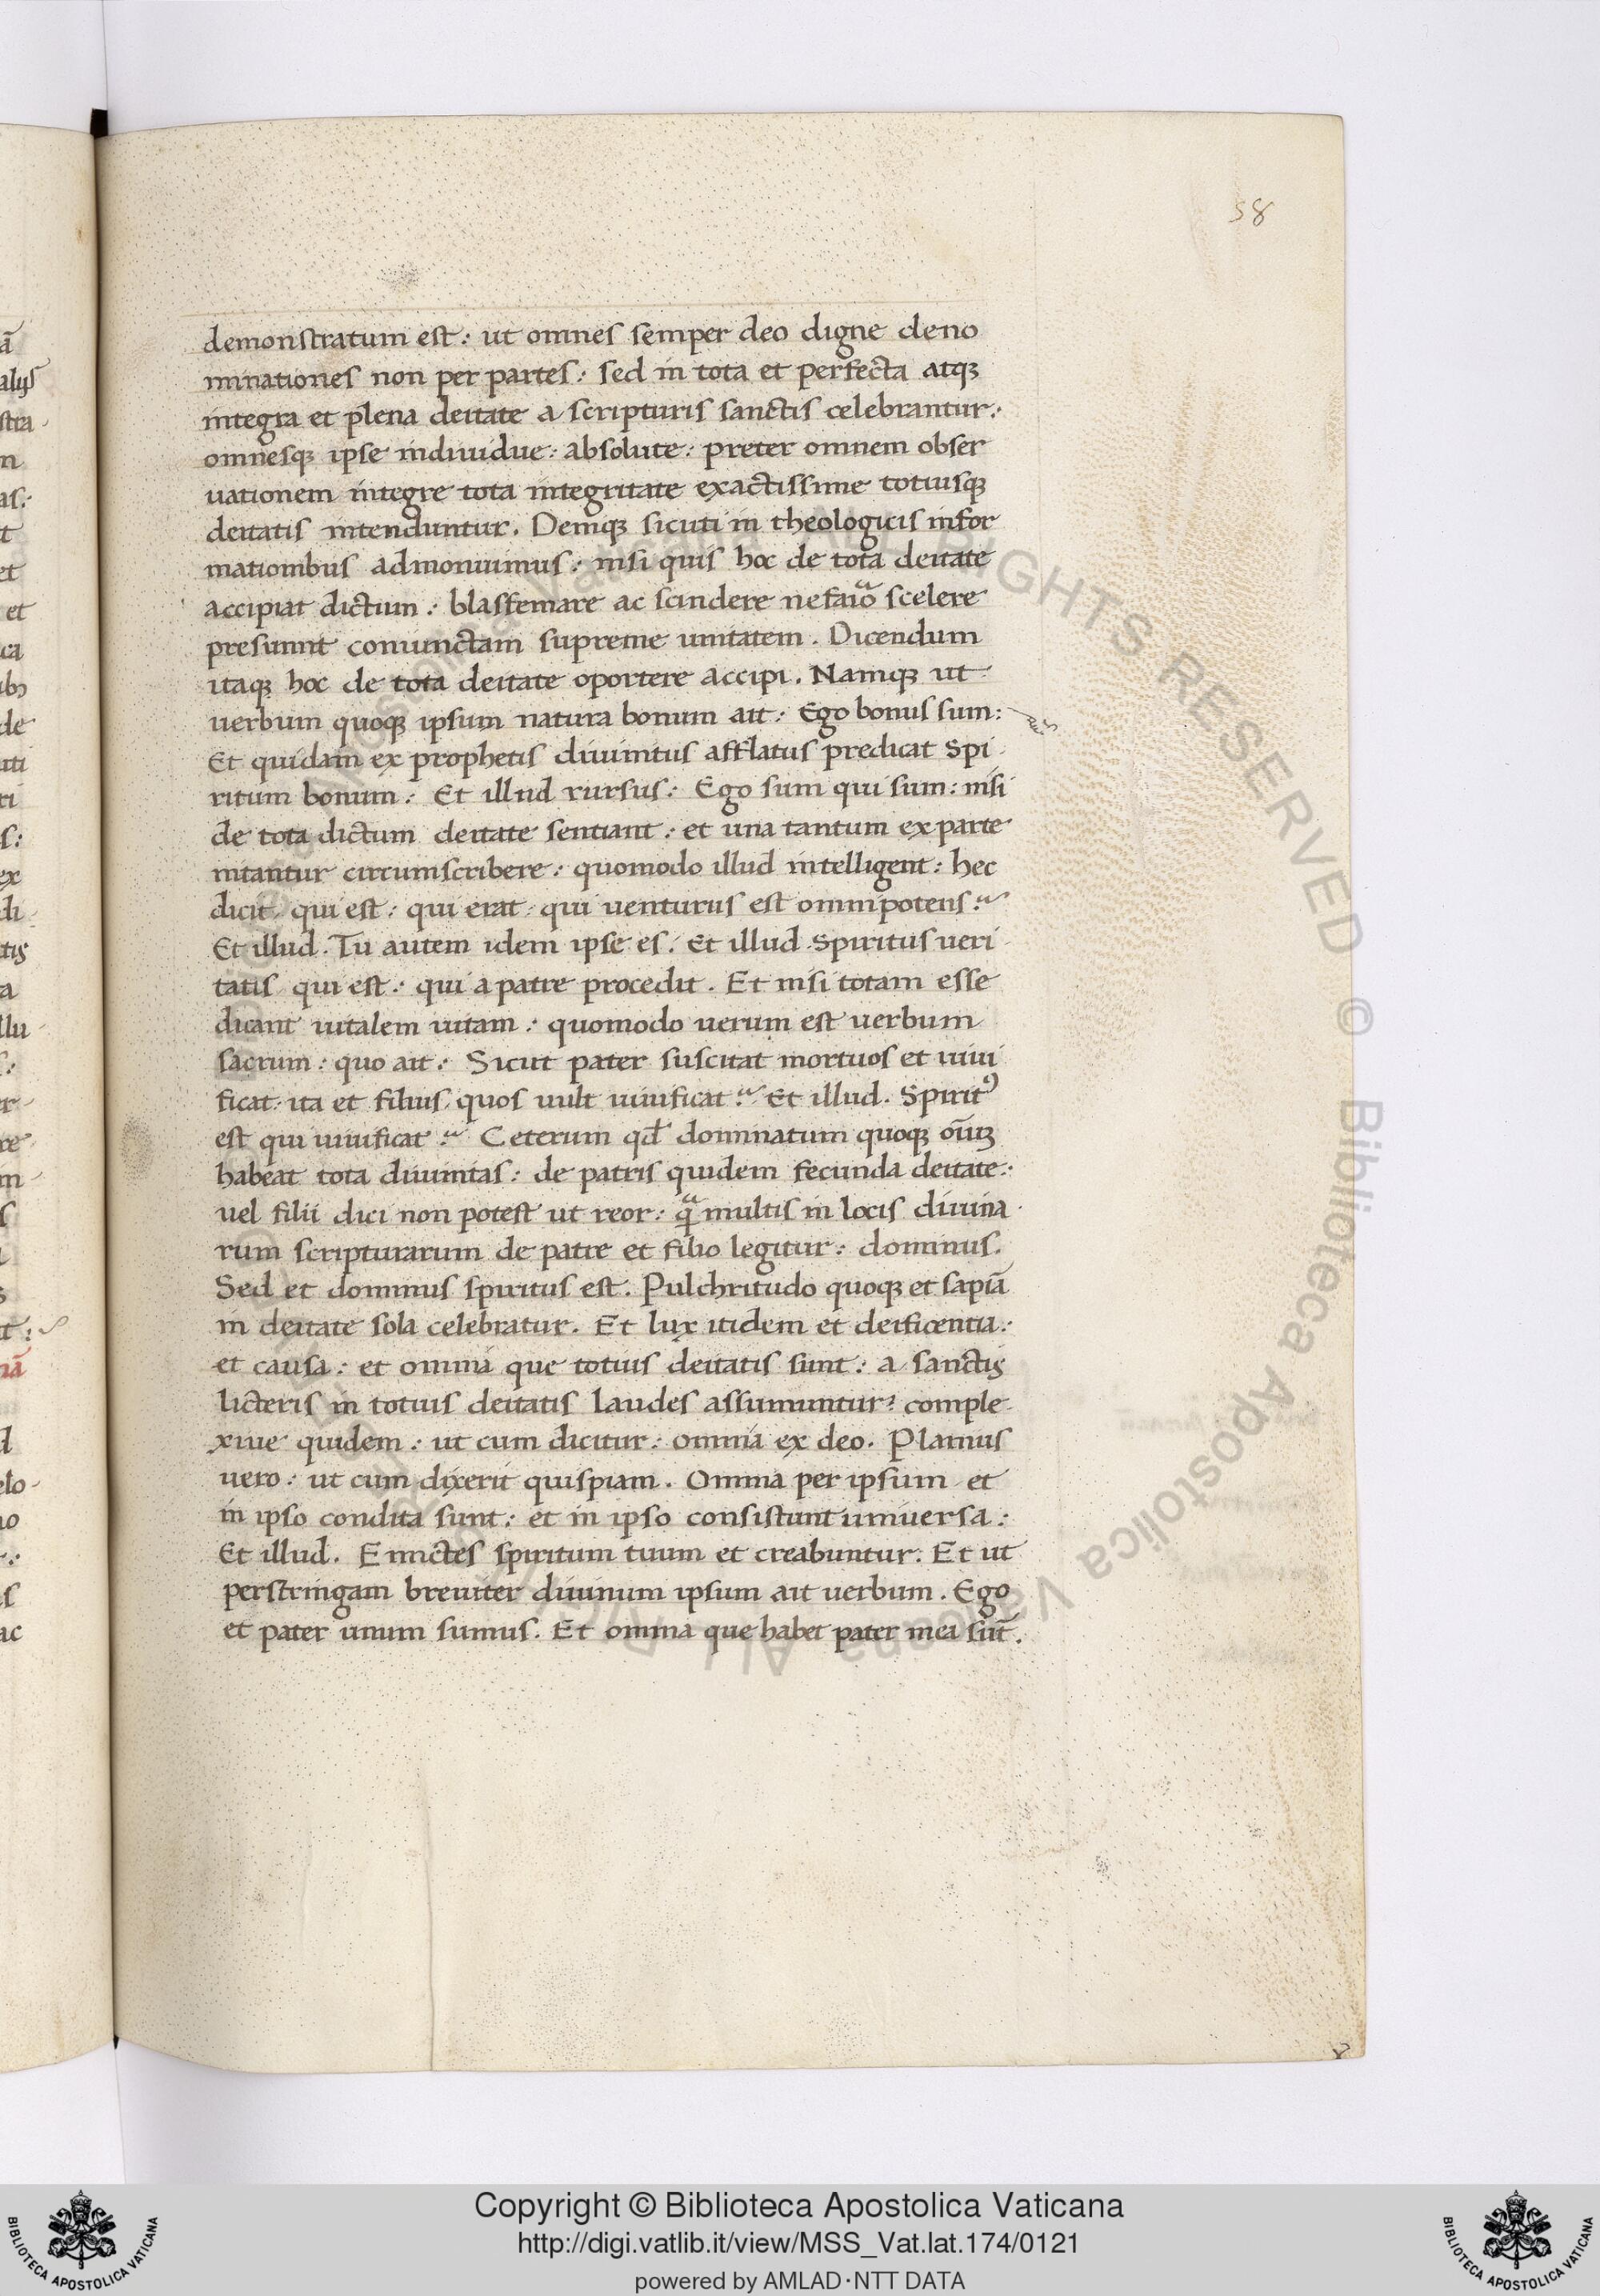 58
demonstratum est: ut omnes semper deo digne deno
minationes non per partes: sed in tota et perfecta atqꝫ
integra et plena deitate a scripturis sanctis celebrantur:
omnesqꝫ ipse indiuidue: absolute: preter omnem obser
uationem integre tota integritate exactissime totiusqꝫ
deitatis intenduntur. Deniqꝫ sicuti in theologicis infor
mationibus admonuimus: nisi quis hoc de tota deitate
accipiat dictum: blasfemare ac scindere nefario scelere
presumit coniunctam supreme unitatem. Dicendum
itaqꝫ hoc de tota deitate oportere accipi. Namqꝫ ut
uerbum quoqꝫ ipsum natura bonum ait: Ego bonus sum:
Et quidam ex prophetis diuinitus afflatus predicat spi
ritum bonum: Et illud rursus: Ego sum qui sum: nisi
de tota dictum deitate sentiant: et una tantum ex parte
nitantur circumscribere: quomodo illud intelligent: hec
dicit qui est: qui erat qui uenturus est omnipotens:
Et illud. Tu autem idem ipse es. Et illud spiritus ueri
tatis qui est: qui a patre procedit. Et nisi totam esse
dicant uitalem uitam: quomodo uerum est uerbum
sacrum: quo ait: Sicut pater suscitat mortuos et uiui
ficat ita et filius quos uult uiuificat: Et illud. Spiritꝰ
est qui uiuificat: Ceterum qđ dominatum quoqꝫ om̄iuꝫ
habeat tota diuinitas: de patris quidem fecunda deitate:
uel filii dici non potest ut reor: qͣ multis in locis diuina
rum scripturarum de patre et filio legitur: dominus.
Sed et dominus spiritus est. Pulchritudo quoqꝫ et sapiā
in deitate sola celebratur. Et lux itidem et deificentia:
et causa: et omnia que totius deitatis sunt: a sanctis
licteris in totius deitatis laudes assumuntur: comple
xiue quidem: ut cum dicitur: omnia ex deo. Planius
uero: ut cum dixerit quispiam. Omnia per ipsum et
in ipso condita sunt: et in ipso consistunt uniuersa:
Et illud. Emictes spiritum tuum et creabuntur. Et ut
perstringam breuiter diuinum ipsum ait uerbum. Ego
et pater unum sumus. Et omnia que habet pater mea sūt.
Copyright © Biblioteca Apostolica Vaticana
http://digi.vatlib.it/view/MSS_Vat.lat.174/0121
powered by AMLAD·NTT DATA